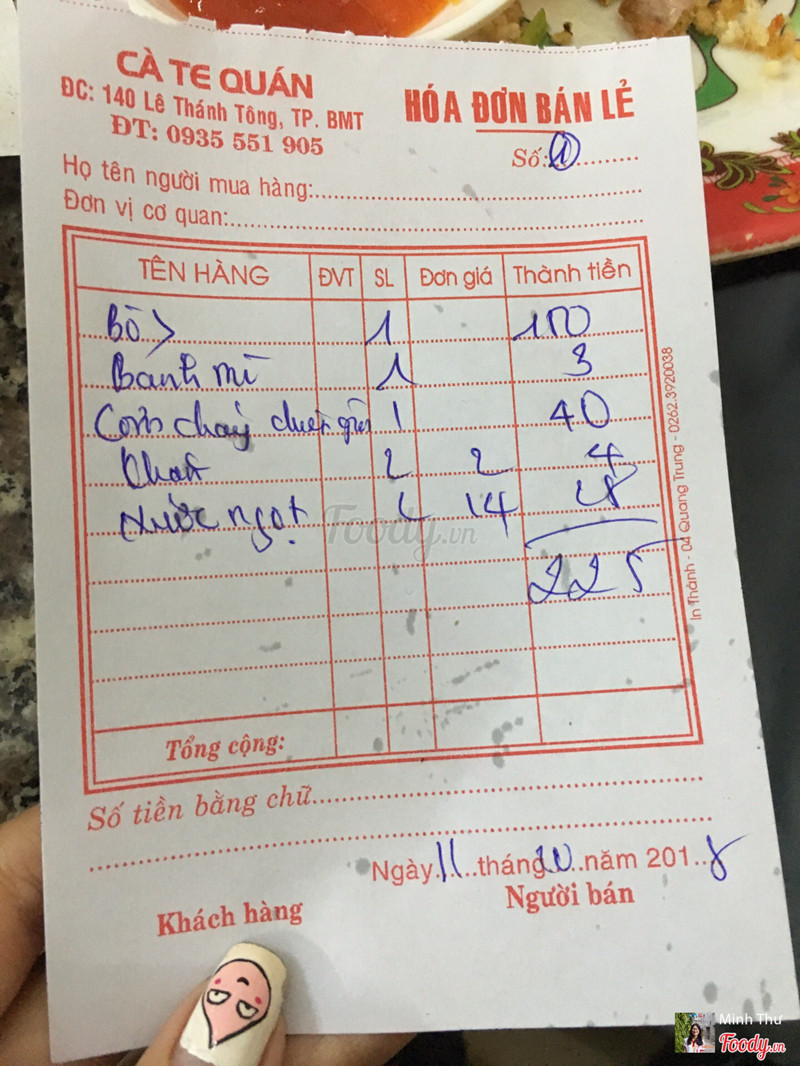 CÀ TE QUÁN
ĐC: 140 Lê Thánh Tông, TP. BMT
ĐT: 0935 551 905
HÓA ĐƠN BÁN LẺ
Số:............
Họ tên người mua hàng:
Đơn vị cơ quan:
TÊN HÀNG ĐVT SL Đơn giá Thành tiền
Bò 1 150
Banh mì 1 3
Cơm cháy 1 40
Khăn 2 2 4
Nước ngọt 2 14 28
225
Tổng cộng:
Số tiền bằng chữ
Ngày 11 tháng 10 năm 2018
Khách hàng Người bán
In Thành - 04 Quang Trung - 0262.3920038
Foody.vn
Minh Thư
Foody.vn